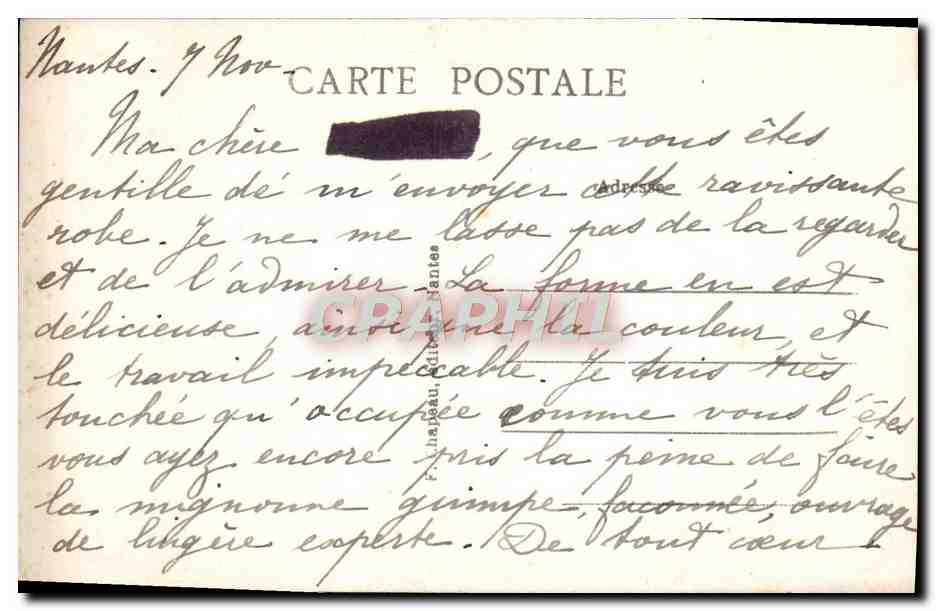 Nantes. 7 Nov -
CARTE POSTALE
Ma chère , que vous êtes
gentille de m'envoyer cette ravissante
Adresse
robe. Je ne me lasse pas de la regarder
et de l'admirer - La forme en est
délicieuse, ainsi que la couleur, et
le travail impeccable. Je suis très
touchée qu'occupée comme vous l'êtes
vous ayez encore pris la peine de faire
la mignonne guimpe, façonnée, ouvrage
de lingère experte. De tout cœur -
F. Chapeau, Éditeur, Nantes
CRAPHIL